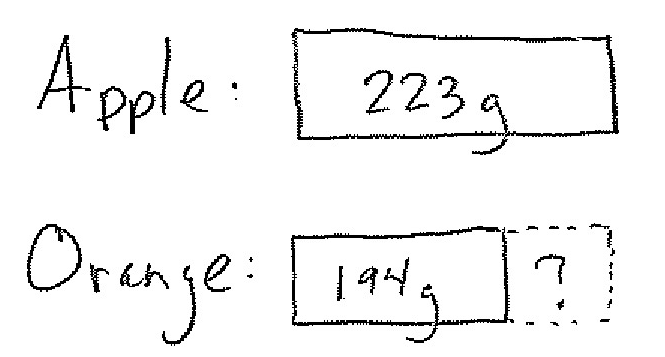 Apple: 223g
Orange: 194g ?